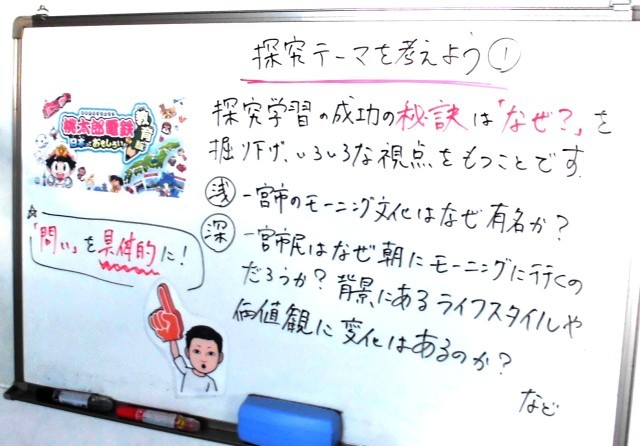 探究テーマを考えよう①
探究学習の成功の秘訣は「なぜ?」を
掘り下げ、いろいろな視点をもつことです
浅 一宮市のモーニング文化はなぜ有名か?
深 一宮市民はなぜ朝にモーニングに行くの
だろうか? 背景にあるライフスタイルや
価値観に変化はあるのか?
など
桃太郎電鉄
教育版
日本っておもしろい!
☆
「問い」を具体的に!